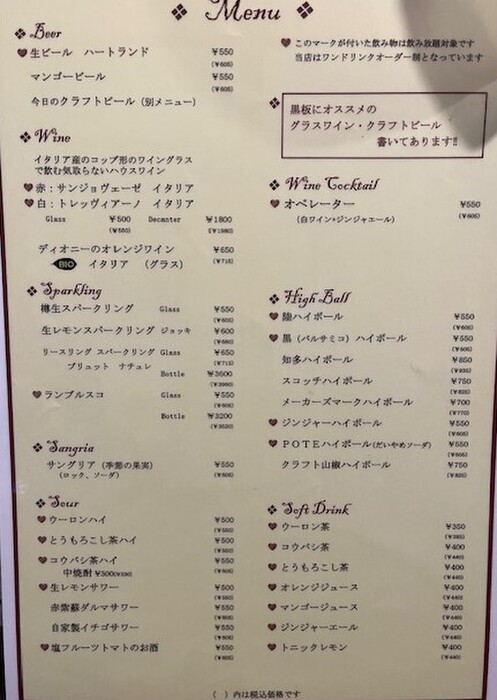 Menu
Beer
生ビール ハートランド ¥550
(¥605)
マンゴービール ¥550
(¥605)
今日のクラフトビール (別メニュー)
Wine
イタリア産のコップ形のワイングラス
で飲む気取らないハウスワイン
赤：サンジョヴェーゼ イタリア
白：トレッヴィアーノ イタリア
Glass ¥500 Decanter ¥1800
(¥550) (¥1980)
ディオニーのオレンジワイン ¥650
BIO イタリア (グラス) (¥715)
Sparkling
樽生スパークリング Glass ¥550
(¥605)
生レモンスパークリング ジョッキ ¥600
(¥660)
リースリング スパークリング Glass ¥650
ブリュット ナチュレ (¥715)
Bottle ¥3600
(¥3960)
ランブルスコ Glass ¥550
(¥605)
Bottle ¥3200
(¥3520)
Sangria
サングリア (季節の果実) ¥550
(ロック、ソーダ) (¥605)
Sour
ウーロンハイ ¥500
(¥550)
とうもろこし茶ハイ ¥500
(¥550)
コウバシ茶ハイ ¥550
中焼酎 ¥300(¥330) (¥605)
生レモンサワー ¥500
(¥550)
赤紫蘇ダルマサワー ¥550
(¥605)
自家製イチゴサワー ¥550
(¥605)
塩フルーツトマトのお酒 ¥550
(¥605)
このマークが付いた飲み物は飲み放題対象です
当店はワンドリンクオーダー制となっています
黒板にオススメの
グラスワイン・クラフトビール
書いてあります!!
Wine Cocktail
オペレーター ¥550
(白ワイン+ジンジャエール) (¥605)
High Ball
陸ハイボール ¥550
(¥605)
黒 (バルサミコ) ハイボール ¥550
(¥605)
知多ハイボール ¥850
(¥935)
スコッチハイボール ¥750
(¥825)
メーカーズマークハイボール ¥700
(¥770)
ジンジャーハイボール ¥550
(¥605)
POTEハイボール(だいやめソーダ) ¥550
(¥605)
クラフト山椒ハイボール ¥750
(¥825)
Soft Drink
ウーロン茶 ¥350
(¥385)
コウバシ茶 ¥400
(¥440)
とうもろこし茶 ¥400
(¥440)
オレンジジュース ¥400
(¥440)
マンゴージュース ¥400
(¥440)
ジンジャーエール ¥400
(¥440)
トニックレモン ¥400
(¥440)
( )内は税込価格です